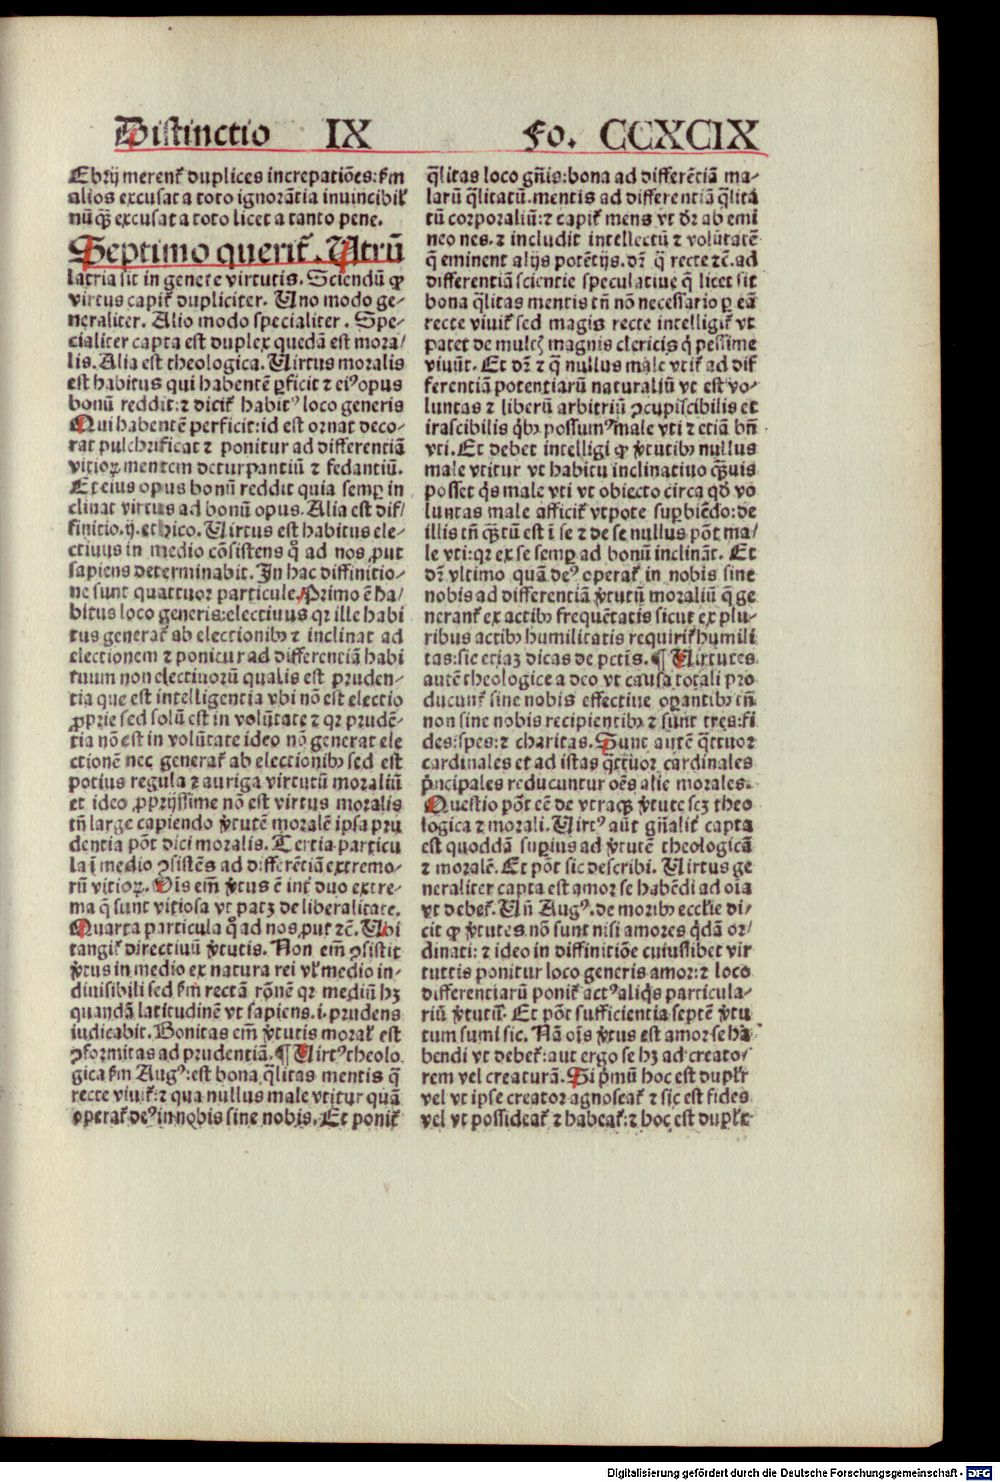 Distinctio IX Fo. CCXCIX
Ebrij merent᷑ duplices increpatiões: ẜm
alios excusat a toto ignorãtia inuincibil᷑
nũq̃ excusat a toto licet a tanto pene.
Septimo querit᷑. Utrũ
latria sit in genere virtutis. Sciendũ ꝙ
virtus capit᷑ dupliciter. Uno modo ge⸗
neraliter. Alio modo specialiter. Spe⸗
cialiter capta est duplex quedã est mora/
lis. Alia est theologica. Uirtus moralis
est habitus qui habentẽ ꝑficit ⁊ eiꝰ opus
bonũ reddit: ⁊ dicit᷑ habitꝰ loco generis
Qui habentẽ perficit: id est ornat deco⸗
rat pulchrificat ⁊ ponitur ad differentiã
vitioꝝ mentem deturpantiũ ⁊ fedantiũ.
Et eius opus bonũ reddit quia semꝑ in
clinat virtus ad bonũ opus. Alia est dif/
finitio .ij. ethico. Uirtus est habitus ele⸗
ctiuus in medio cõsistens q̊ ad nos ꝓut
sapiens determinabit. In hac diffinitio⸗
ne sunt quattuor particule. Primo ẽ ha/
bitus loco generis: electiuus qꝛ ille habi
tus generat᷑ ab electionibꝫ ⁊ inclinat ad
electionem ⁊ ponitur ad differentiã habi
tuum non electiuorũ qualis est pruden⸗
tia que est intelligentia vbi nõ est electio
ꝓprie sed solũ est in volũtate ⁊ qꝛ prudẽ⸗
tia nõ est in volũtate ideo nõ generat ele
ctionẽ nec generat᷑ ab electionibꝫ sed est
potius regula ⁊ auriga virtutũ moraliũ
et ideo ꝓprijssime nõ est virtus moralis
tñ large capiendo v̓tutẽ moralẽ ipsa pru
dentia põt dici moralis. Tertia particu
la ĩ medio ꝯsistẽs ad differẽtiã extremo⸗
rũ vitioꝝ. Ois em̃ v̓tus ẽ int᷑ duo extre⸗
ma q̃ sunt vitiosa vt patꝫ de liberalitate.
Quarta particula q̊ ad nos ꝓut ⁊c̃. Ubi
tangit᷑ directiuũ v̓tutis. Non em̃ ꝯsistit
v̓tus in medio ex natura rei vl᷑ medio in⸗
diuisibili sed ẜm rectã rõnẽ qꝛ mediũ hꝫ
quandã latitudinẽ vt sapiens .i. prudens
iudicabit. Bonitas em̃ v̓tutis moral᷑ est
ꝯformitas ad prudentiã. ¶ Uirtꝰ theolo
gica ẜm Augꝰ: est bona q̃litas mentis q̃
recte viuit᷑: ⁊ qua nullus male vtitur quã
operat᷑ deꝰ in nobis sine nobis. Et ponit᷑
q̃litas loco gñis: bona ad differẽtiã ma⸗
larũ q̃litatũ. mentis ad differentiã q̃lita
tũ corporaliũ: ⁊ capit᷑ mens vt dr̃ ab emi
neo nes. ⁊ includit intellectũ ⁊ volũtatẽ
q̃ eminent alijs potẽtijs. dr̃ q̃ recte ⁊c̃. ad
differentiã scientie speculatiue q̃ licet sit
bona q̃litas mentis tñ nõ necessario ꝑ eã
recte viuit᷑ sed magis recte intelligit᷑ vt
patet de multꝭ magnis clericis q̓ pessime
viuũt. Et dr̃ ⁊ q̃ nullus male vtit᷑ ad dif
ferentiã potentiarũ naturaliũ vt est vo⸗
luntas ⁊ liberũ arbitriũ ꝯcupiscibilis et
irascibilis q̓bꝫ possumꝰ male vti ⁊ etiã bñ
vti. Et debet intelligi ꝙ v̓tutibꝫ nullus
male vtitur vt habitu inclinatiuo q̃uis
posset q̓s male vti vt obiecto circa qd̃ vo
luntas male afficit᷑ vtpote suꝑbiẽdo: de
illis tñ q̃tũ est ĩ se ⁊ de se nullus põt ma/
le vti: qꝛ ex se semꝑ ad bonũ inclinãt. Et
dr̃ vltimo quã deꝰ operat᷑ in nobis sine
nobis ad differentiã v̓tutũ moraliũ q̃ ge
nerant᷑ ex actibꝫ frequẽtatis sicut ex plu⸗
ribus actibꝫ humilitatis requirit᷑ humili
tas: sic etiaꝫ dicas de pctĩs. ¶ Uirtutes
autẽ theologice a deo vt causa totali pro
ducunt᷑ sine nobis effectiue oꝑantibꝫ tñ
non sine nobis recipientibꝫ ⁊ sunt tres: fi
des: spes: ⁊ charitas. Sunt autẽ q̃ttuor
cardinales et ad istas q̃ttuor cardinales
p̓ncipales reducuntur oẽs alie morales.
Questio põt eẽ de vtraqꝫ v̓tute scꝫ theo
logica ⁊ morali. Uirtꝰ aũt gñalit᷑ capta
est quoddã suꝑius ad v̓tutẽ theologicã
⁊ moralẽ. Et põt sic describi. Uirtus ge
neraliter capta est amor se habẽdi ad oĩa
vt debet᷑. Uñ Augꝰ. de moribꝫ ecclie di⸗
cit ꝙ v̓tutes nõ sunt nisi amores q̓dã or/
dinati: ⁊ ideo in diffinitiõe cuiuslibet vir
tutis ponitur loco generis amor: ⁊ loco
differentiarũ ponit᷑ actꝰ aliq̓s particula⸗
riũ v̓tutũ. Et põt sufficientia septẽ v̓tu
tum sumi sic. Nã oĩs v̓tus est amor se ha⸗
bendi vt debet᷑: aut ergo se hꝫ ad creato/
rem vel creaturã. Si p̓mũ hoc est duplr̃
vel vt ipse creator agnoscat᷑ ⁊ sic est fides
vel vt possideat᷑ ⁊ habeat᷑: ⁊ hoc est duplr̃
Digitalisierung gefördert durch die Deutsche Forschungsgemeinschaft - DFG